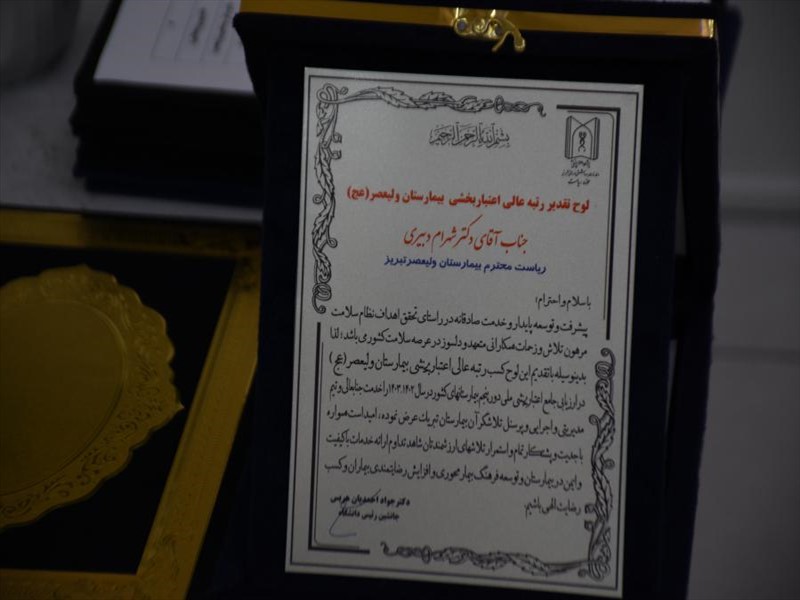 بسم الله الرحمن الرحیم
لوح تقدیر رتبه عالی اعتباربخشی بیمارستان ولیعصر(عج)
جناب آقای دکتر شهرام دبیری
ریاست محترم بیمارستان ولیعصر تبریز
با سلام و احترام؛
پیشرفت و توسعه پایدار و خدمت صادقانه در راستای تحقق اهداف نظام سلامت
مرهون تلاش و زحمات همکارانی متعهد و دلسوز در عرصه سلامت کشور می باشد؛ لذا
بدینوسیله با تقدیم این لوح کسب رتبه عالی اعتباربخشی بیمارستان ولیعصر (عج)
در ارزیابی جامع اعتباربخشی ملی دوره پنجم بیمارستانهای کشور در سال ۱۴۰۲-۱۴۰۳ را خدمت جنابعالی و تیم
مدیریتی و اجرایی و پرسنل تلاشگر آن بیمارستان تبریک عرض نموده، امید است همواره
با جدیت و پشتکار تمام و استمرار تلاشهای ارزشمندتان شاهد تداوم ارائه خدمات با کیفیت
و ایمن در بیمارستان و توسعه فرهنگ بیمار محوری و افزایش رضایتمندی بیماران و کسب
رضایت الهی باشیم.
دکتر جواد احمدیان هریس
جانشین رئیس دانشگاه